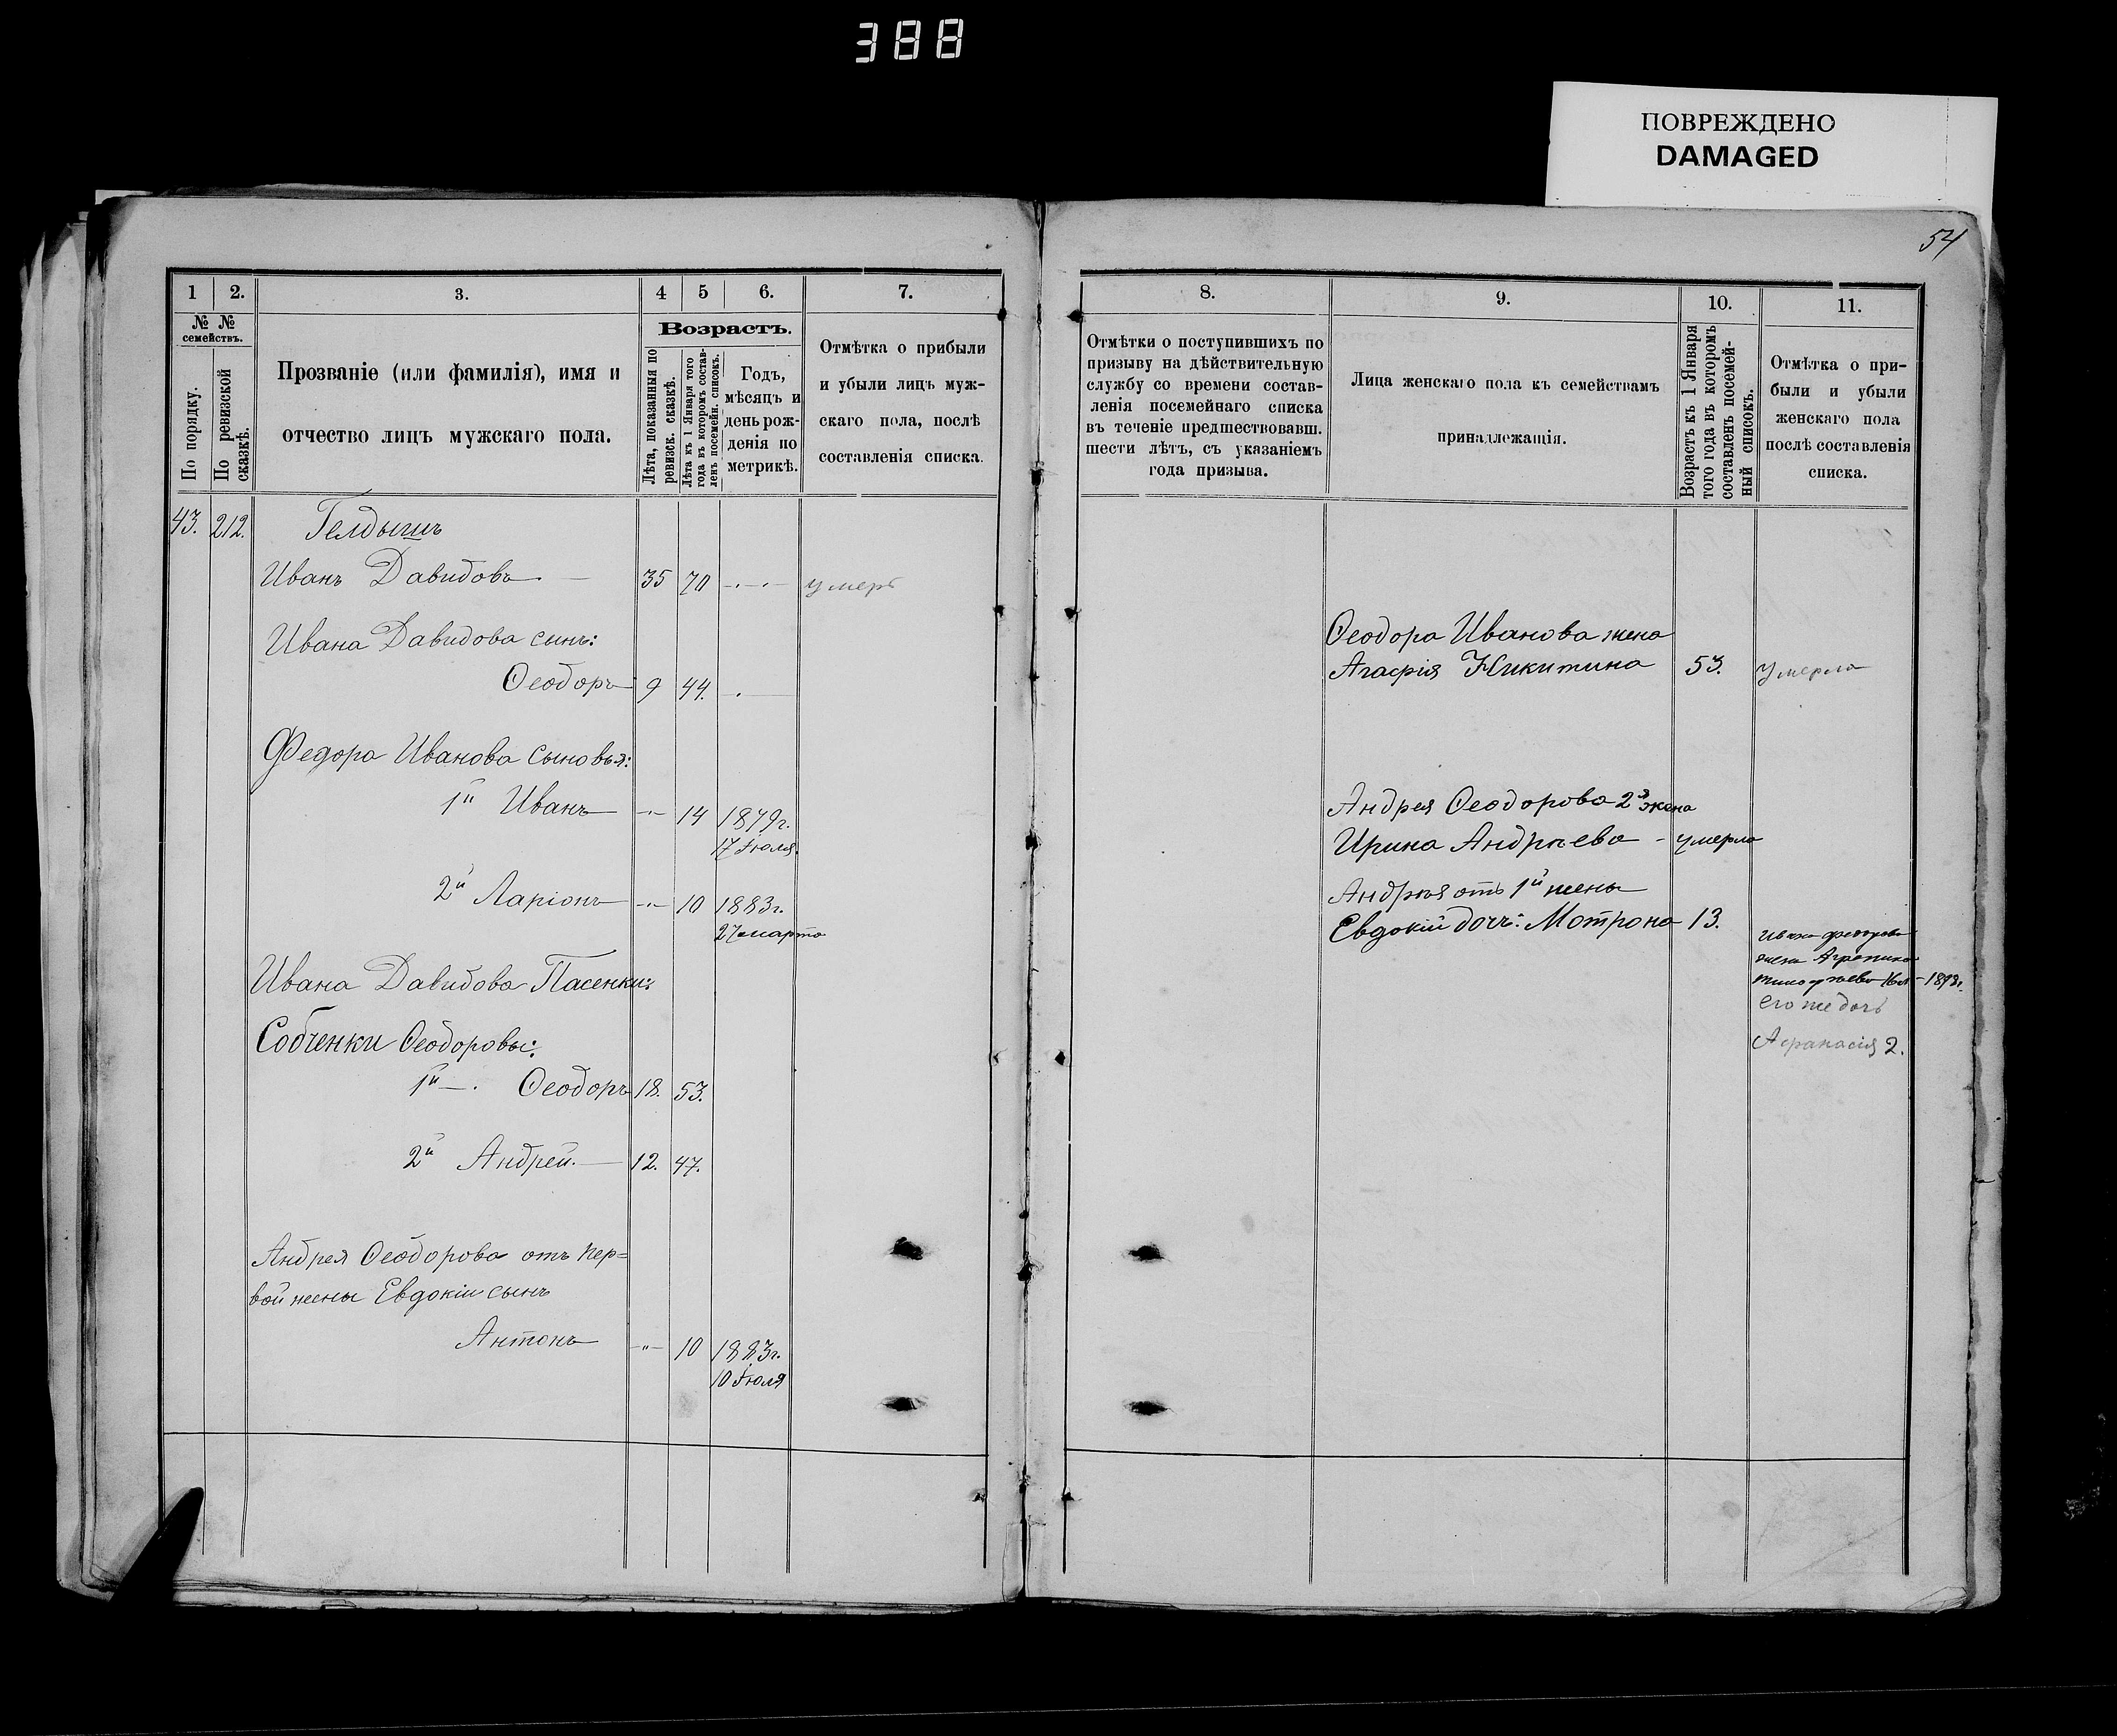 388
ПОВРЕЖДЕНО
DAMAGED
54
1 2. 3. 4 5 6. 7.
№ №
семействъ.
По порядку.
По ревизской сказкѣ.
Прозваніе (или фамилія), имя и
отчество лицъ мужскаго пола.
Возрастъ.
Лѣта, показанныя по
ревизск. сказкѣ.
Лѣта къ 1 Января того
года въ которомъ состав-
ленъ посемейн. списокъ.
Годъ,
мѣсяцъ и
день рож-
денія по
метрикѣ.
Отмѣтка о прибыли
и убыли лицъ муж-
скаго пола, послѣ
составленія списка.
43. 212. Гелдышъ
Иванъ Давидовъ. — 35 70 умеръ
Ивана Давидова сынъ:
Ѳеодоръ 9 44.
Федора Иванова сыновья:
1й Иванъ 14 1879г.
17 Іюля.
2й Ларіонъ 10 1883г.
27 марта
Ивана Давидова Пасенки:
Собченки Ѳеодоровы:
1й —. Ѳеодоръ 18. 53.
2й Андрей. — 12. 47.
Андрея Ѳеодорова отъ пер=
вой жены Евдокіи сынъ
Антонъ 10 1883г.
10 Іюля
8. 9. 10. 11.
Отмѣтки о поступившихъ по
призыву на дѣйствительную
службу со времени состав-
ленія посемейнаго списка
въ теченіе предшествовавш.
шести лѣтъ, съ указаніемъ
года призыва.
Лица женскаго пола къ семействамъ
принадлежащія.
Возрастъ къ 1 Января
того года въ которомъ
составленъ посемей-
ный списокъ.
Отмѣтка о при-
были и убыли
женскаго пола
послѣ составленія
списка.
Ѳеодора Иванова жена
Агафія Никитина 53. умерла
Андрея Ѳеодорова 2я жена
Ирина Андрѣева - умерла
Андрѣя отъ 1й жены
Евдокіи дочь: Мотрона 13.
Ивана Федорова
жена
1893г.
его же дочь
Афанасія 2.